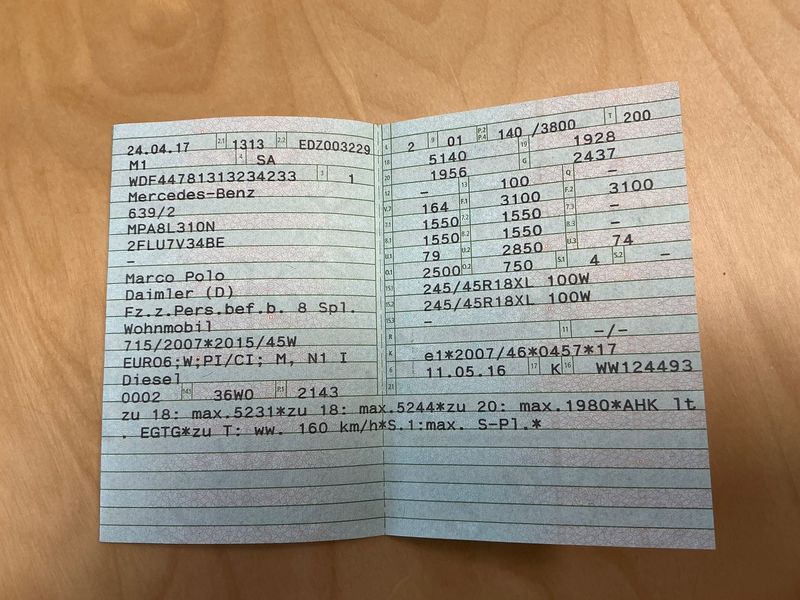 24.04.17 2.1 1313 2.2 EDZ003229
M1 4 SA
WDF44781313234233 3 1
Mercedes-Benz
639/2
MPA8L310N
2FLU7V34BE
–
Marco Polo
Daimler (D)
Fz.z.Pers.bef.b. 8 Spl.
Wohnmobil
715/2007*2015/45W
EURO6;W;PI/CI; M, N1 I
Diesel
0002 14.1 36W0 P.1 2143
L 2 9 01 P.2 P.4 140 /3800 T 200
18 5140 19 1928
20 1956 G 2437
12 – 13 100 Q –
V.7 164 F.1 3100 F.2 3100
7.1 1550 7.2 1550 7.3 –
8.1 1550 8.2 1550 8.3 –
U.1 79 U.2 2850 U.3 74
O.1 2500 O.2 750 S.1 4 S.2 –
15.1 245/45R18XL 100W
15.2 245/45R18XL 100W
15.3 –
R 11 –/–
K e1*2007/46*0457*17
6 11.05.16 17 K 16 WW124493
21
zu 18: max.5231*zu 18: max.5244*zu 20: max.1980*AHK lt
. EGTG*zu T: ww. 160 km/h*S.1:max. S-Pl.*